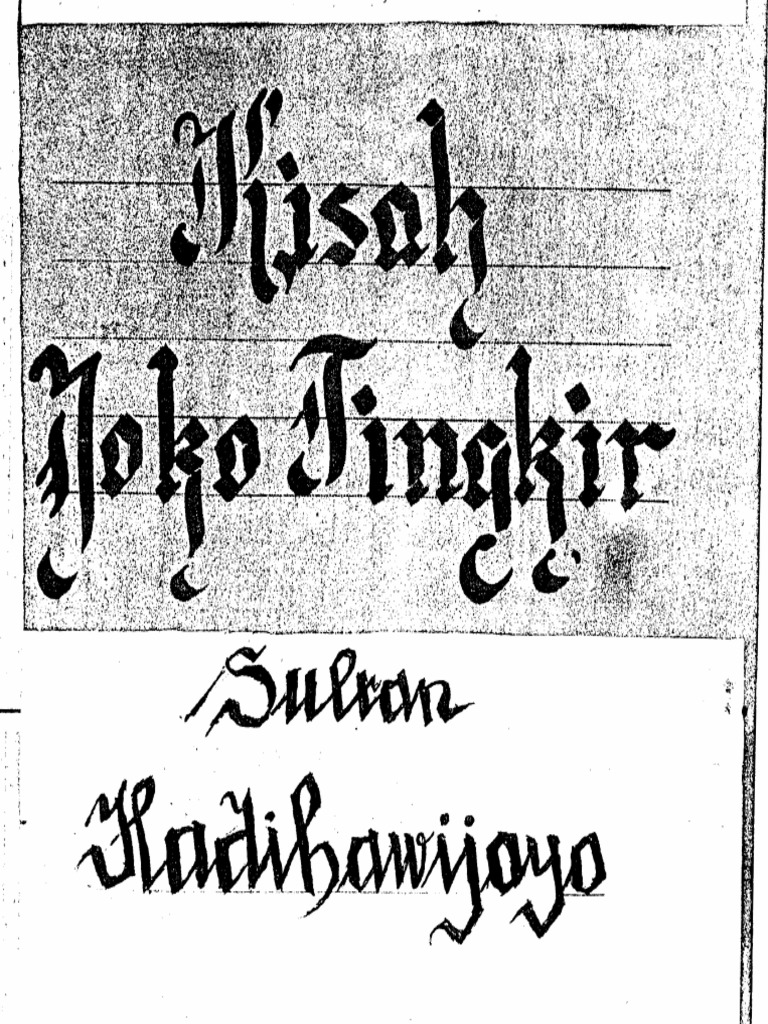 Kisah
Joko Tingkir
Sultan
Hadihawijoyo